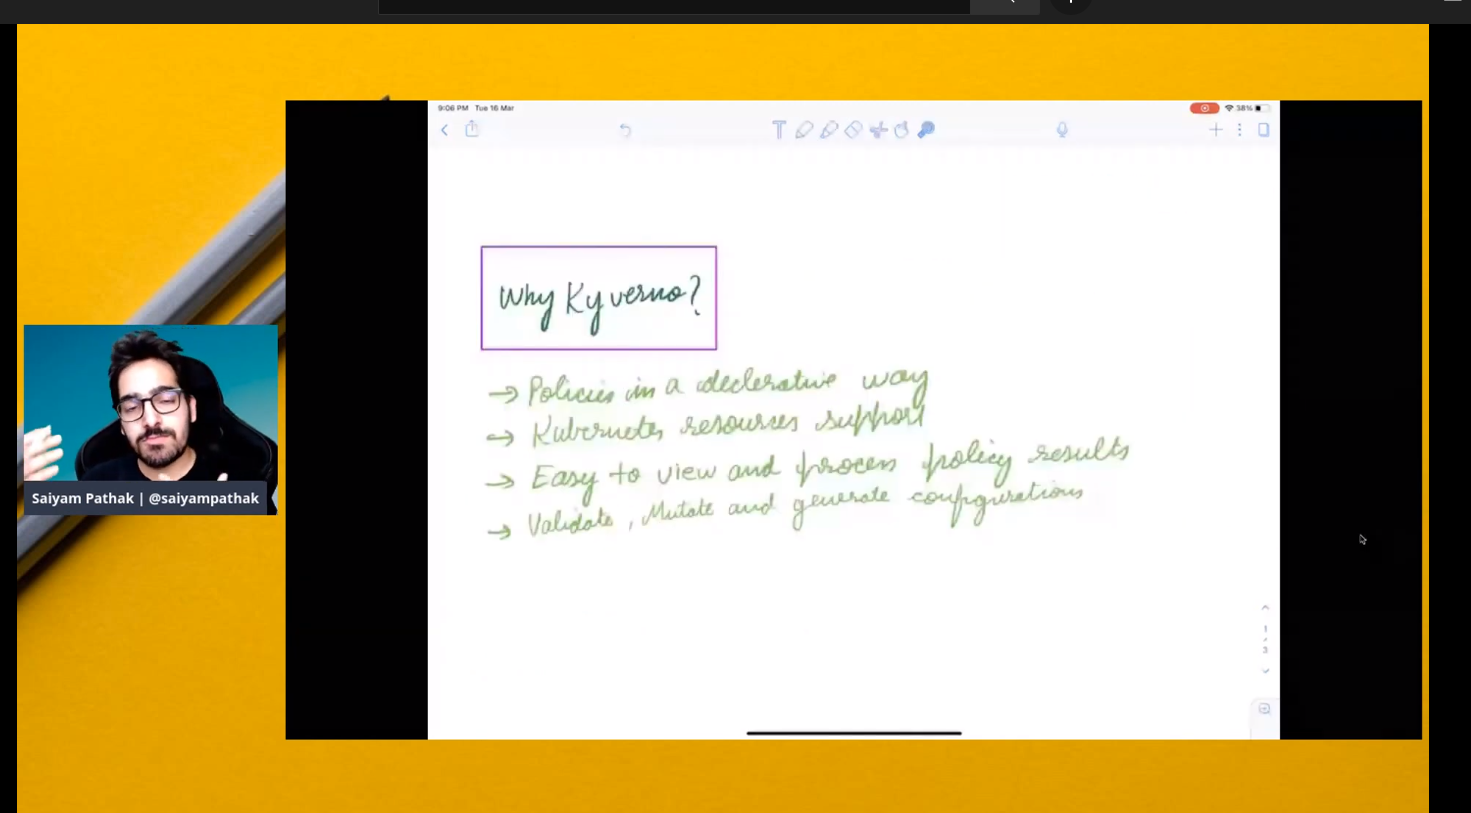 9:06 PM Tue 16 Mar
38%
Why Kyverno?
→ Policies in a declerative way
→ Kubernetes resources support
→ Easy to view and process policy results
→ Validate, Mutate and generate configurations
Saiyam Pathak | @saiyampathak
1
3